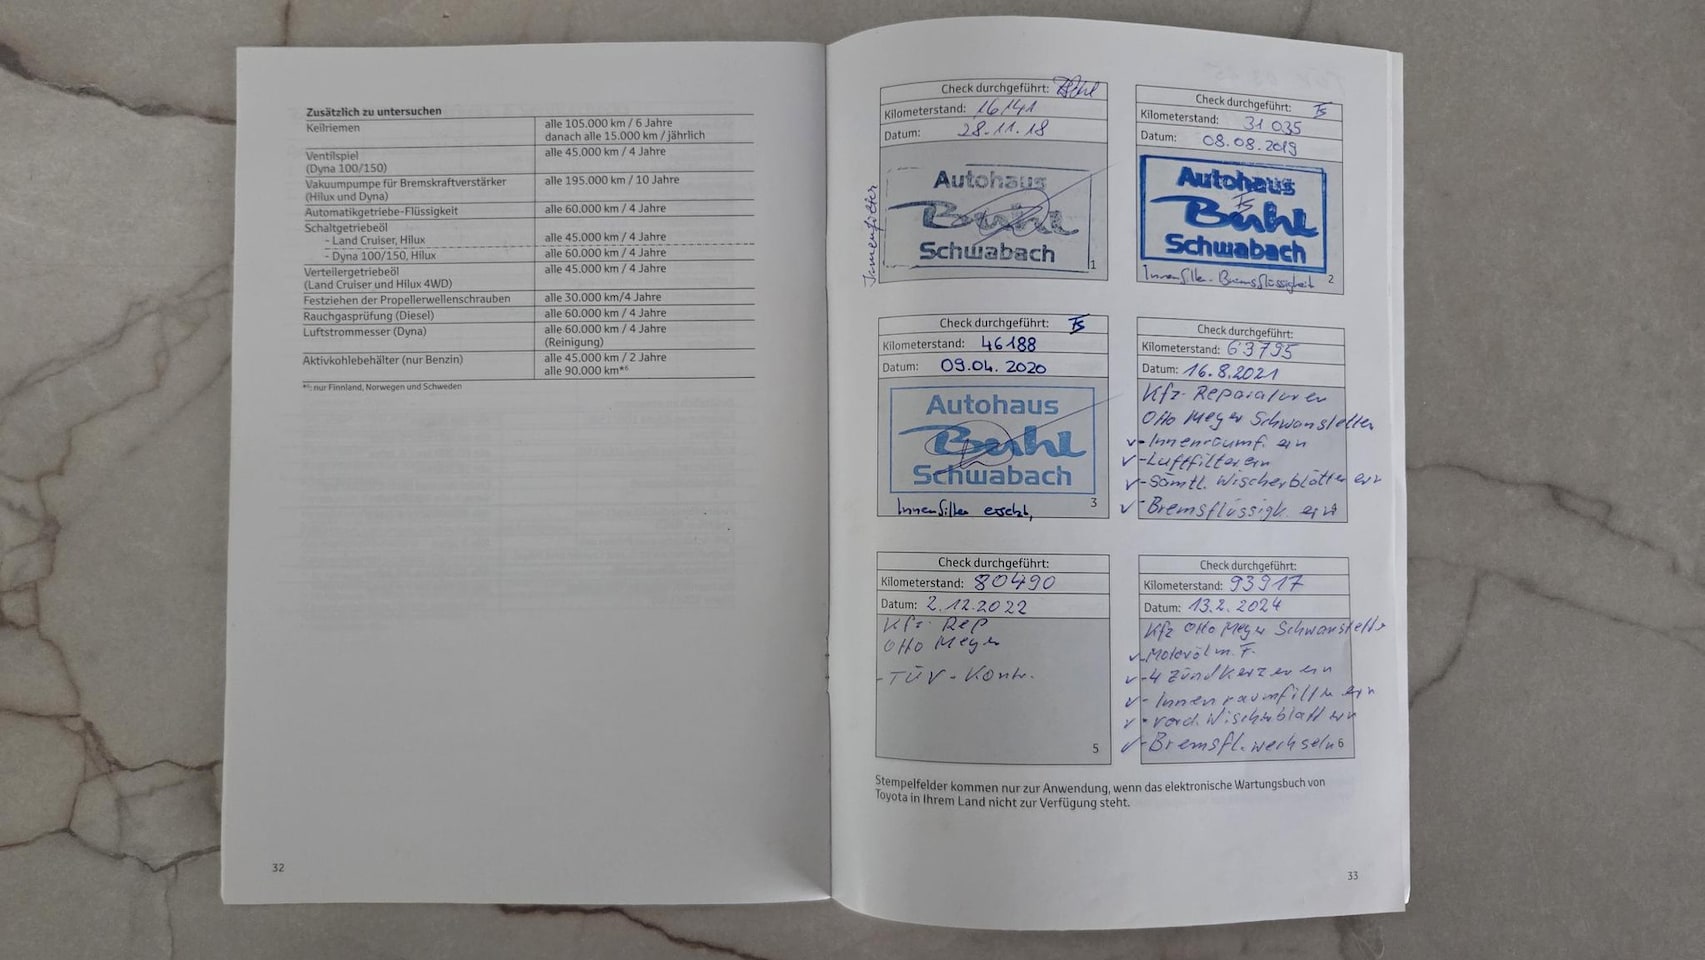 Zusätzlich zu untersuchen
Keilriemen alle 105.000 km / 6 Jahre
danach alle 15.000 km / jährlich
Ventilspiel alle 45.000 km / 4 Jahre
(Dyna 100/150)
Vakuumpumpe für Bremskraftverstärker alle 195.000 km / 10 Jahre
(Hilux und Dyna)
Automatikgetriebe-Flüssigkeit alle 60.000 km / 4 Jahre
Schaltgetriebeöl
- Land Cruiser, Hilux alle 45.000 km / 4 Jahre
- Dyna 100/150, Hilux alle 60.000 km / 4 Jahre
Verteilergetriebeöl alle 45.000 km / 4 Jahre
(Land Cruiser und Hilux 4WD)
Festziehen der Propellerwellenschrauben alle 30.000 km/4 Jahre
Rauchgasprüfung (Diesel) alle 60.000 km / 4 Jahre
Luftstrommesser (Dyna) alle 60.000 km / 4 Jahre
(Reinigung)
Aktivkohlebehälter (nur Benzin) alle 45.000 km / 2 Jahre
alle 90.000 km*⁶
*⁶: nur Finnland, Norwegen und Schweden
32
Check durchgeführt:
Kilometerstand: 16141
Datum: 28.11.18
Innenfilter
Autohaus
Buhl
Schwabach
1
Check durchgeführt: TS
Kilometerstand: 31 035
Datum: 08.08.2019
Autohaus
Buhl
Schwabach
Innenfilter - Bremsflüssigkeit 2
Check durchgeführt: TS
Kilometerstand: 46188
Datum: 09.04. 2020
Autohaus
Buhl
Schwabach
3
Innenfilter ersetzt,
Check durchgeführt:
Kilometerstand: 63795
Datum: 16.8.2021
Kfz-Reparaturen
Otto Meyer Schwanstetten
✓- Innenraumf. ern
✓- Luftfilter ern
✓- Sämtl. Wischerblätter ern
✓- Bremsflüssigk. ern
Check durchgeführt:
Kilometerstand: 80490
Datum: 2.12.2022
Kfz- Rep
Otto Meyer
- TÜV - Kontr.
5
Check durchgeführt:
Kilometerstand: 93917
Datum: 13.2.2024
Kfz Otto Meyer Schwanstett
✓- Motoröl m. F.
✓- 4 Zündkerzen ern
✓- Innenraumfilter ern
✓- vord. Wischerblatt ern
✓- Bremsfl. wechseln 6
Stempelfelder kommen nur zur Anwendung, wenn das elektronische Wartungsbuch von
Toyota in Ihrem Land nicht zur Verfügung steht.
33